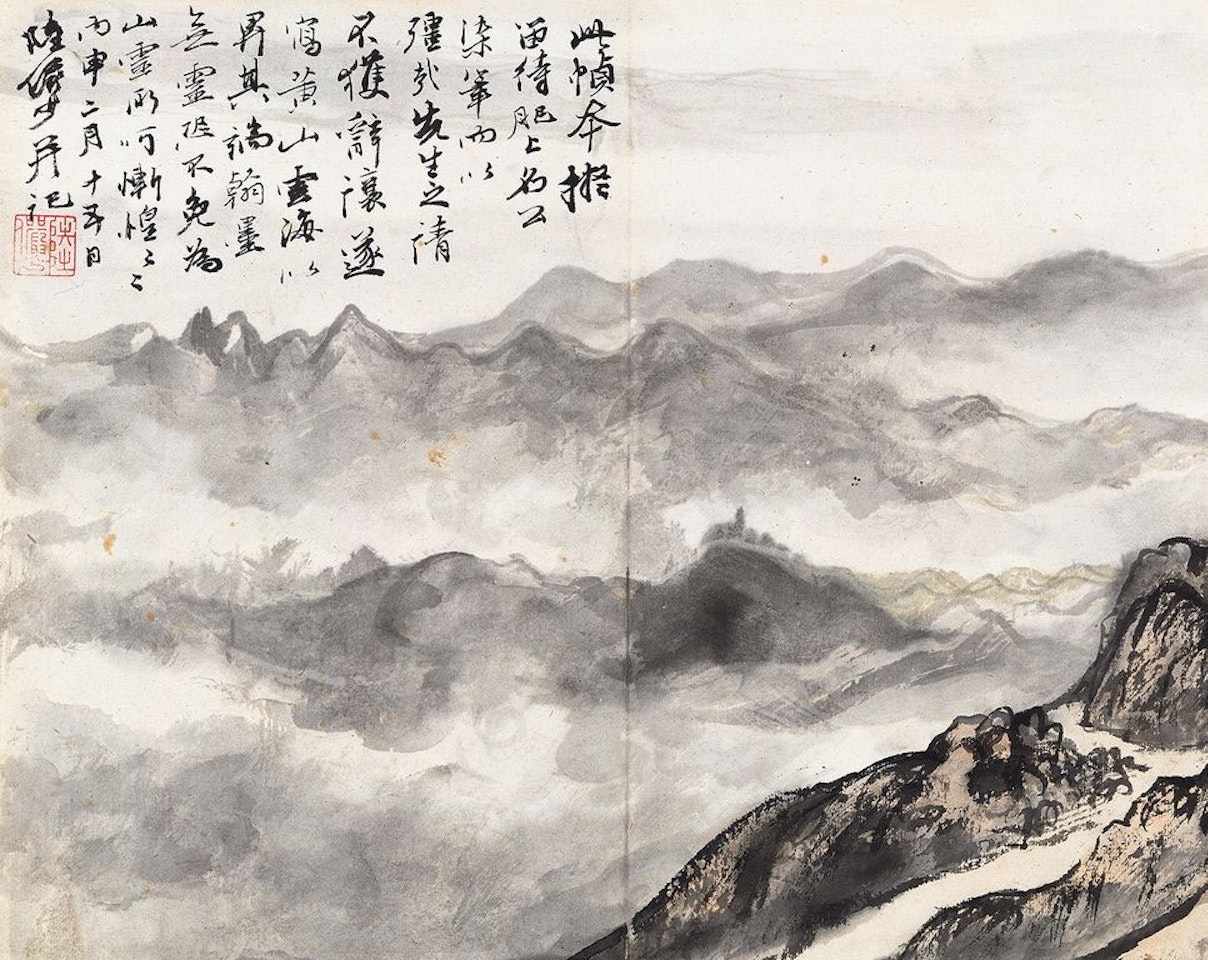 此幀本擬
留待肥上名公
染翰而以
彊
先生之請
不獲辭讓遂
寫黃山雲海以
昇其端翰墨
無靈恐不免為
山靈所呵慚惶〻〻
丙申二月十五日
陸儼少并記